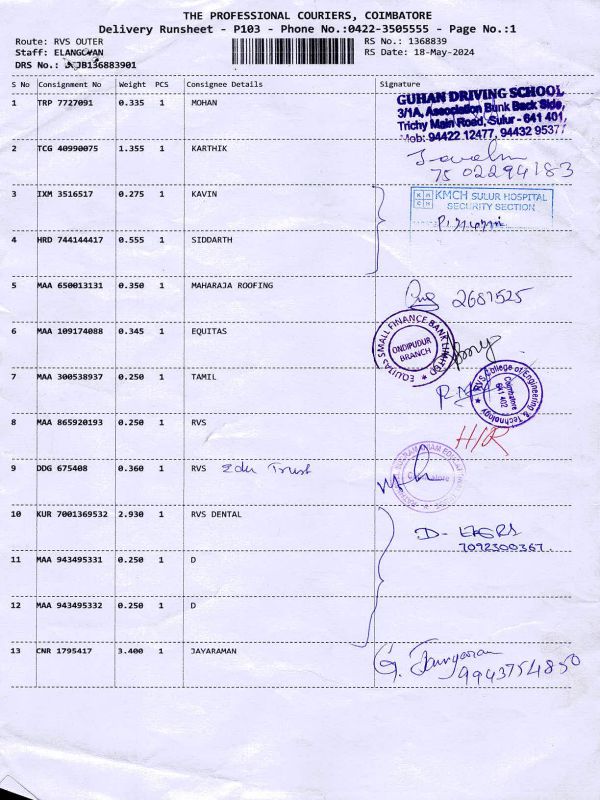 THE PROFESSIONAL COURIERS, COIMBATORE
Delivery Runsheet - P103 - Phone No.:0422-3505555 - Page No.:1
Route: RVS OUTER
RS No.: 1368839
Staff: ELANGOVAN
RS Date: 18-May-2024
DRS No.: 136883901
S No Consignment No Weight PCS Consignee Details Signature
1 TRP 7727091 0.335 1 MOHAN
GUHAN DRIVING SCHOOL
3/1A, Association Bunk Back Side,
Trichy Main Road, Sulur - 641 401,
Mob: 94422 12477, 94432 95377
2 TCG 40990075 1.355 1 KARTHIK
75 02294183
3 IXM 3516517 0.275 1 KAVIN
KMCH SULUR HOSPITAL
SECURITY SECTION
4 HRD 744144417 0.555 1 SIDDARTH
5 MAA 650013131 0.350 1 MAHARAJA ROOFING
2687525
6 MAA 109174088 0.345 1 EQUITAS
EQUITAS SMALL FINANCE BANK LIMITED
ONDIPUDUR
BRANCH
7 MAA 300538937 0.250 1 TAMIL
RVS College of Engineering & Technology
Coimbatore
641 402
8 MAA 865920193 0.250 1 RVS
H/R
9 DDG 675408 0.360 1 RVS Edu Trust
10 KUR 7001369532 2.930 1 RVS DENTAL
7092300367.
11 MAA 943495331 0.250 1 D
12 MAA 943495332 0.250 1 D
13 CNR 1795417 3.400 1 JAYARAMAN
9943754850